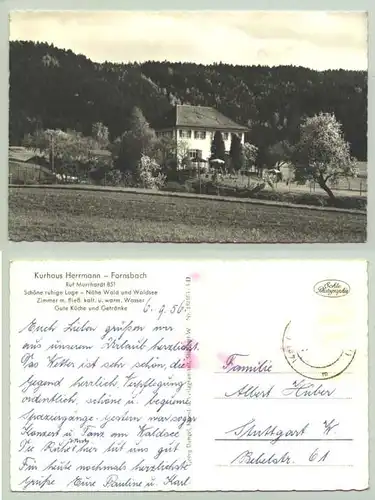 Kurhaus Herrmann – Fornsbach
Ruf Murrhardt 857
Schöne ruhige Lage – Nähe Wald und Waldsee
Zimmer m. fließ. kalt. u. warm. Wasser
Gute Küche und Getränke
6. 9. 56.
Euch Lieben grüßen wir
aus unserem Urlaub herzlichst.
Das Wetter ist sehr schön, die
Gegend herrlich, Verpflegung
ordentlich, schöne u. bequeme
Spaziergänge – gestern war sogar
Konzert u. Tanz am Waldsee.
Die Ruhe hier tut uns gut
Für heute nochmals herzlichste
Grüße Eure Pauline u. Karl
Echte Photographie
Familie
Albert Huber
Stuttgart W
Bebelstr. 61